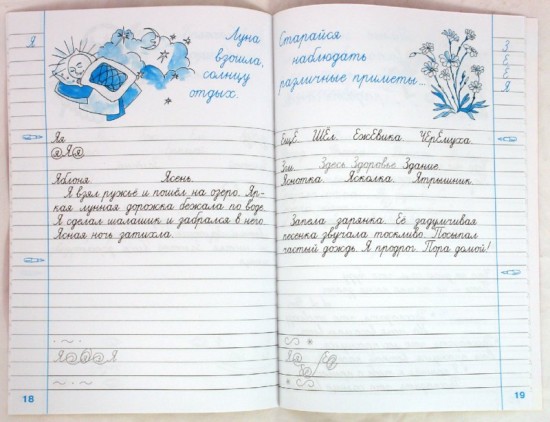 Я
Луна
взошла,
солнцу
отдых.
Яя
Яблоня Ясень.
Я взял ружьё и пошёл на озеро. Яр-
кая лунная дорожка бежала по воде.
Я сделал шалашик и забрался в него.
Ясная ночь затихла.
18
Старайся
наблюдать
различные приметы...
З
Е
Ё
Я
ЕщЁ. ШЁл. ЕжЕвика. ЧЕрЁмуха.
Здесь Здоровье Здание
Яснотка. Ясколка. Ятрышник.
Запела зарянка. Её задумчивая
песенка звучала тоскливо. Посыпал
частый дождь. Я продрог. Пора домой!
19